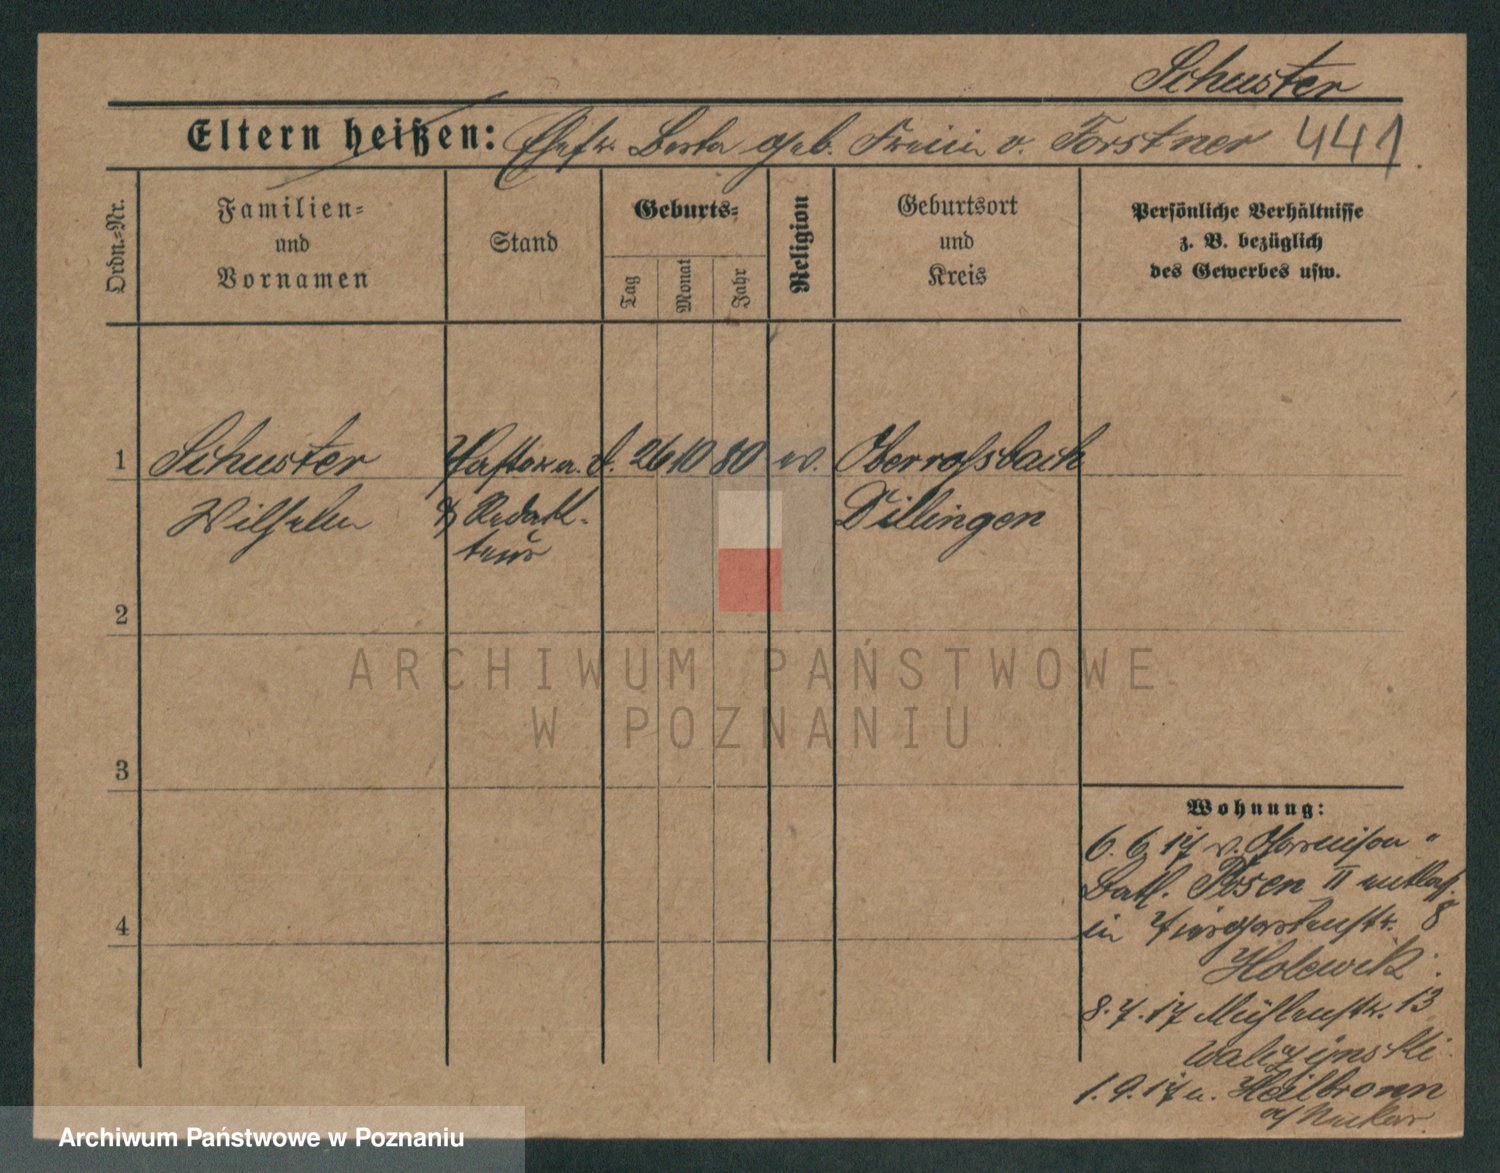 Schuster
Eltern heißen: Ehefr. Berta geb. Freiin v. Forstner 441
Ordn.=Nr.
Familien=
und
Vornamen
Stand
Geburts=
Tag
Monat
Jahr
Religion
Geburtsort
und
Kreis
Persönliche Verhältnisse
z. B. bezüglich
des Gewerbes usw.
1 Schuster Pastor a. D. 26 10 80 ev. Oberrossbach
Wilhelm & Redak-
teur
Dillingen
2
3
4
Wohnung:
6. 6. 17 v. Garnison
Batl. Posen II entlass.
in Tiergartenstr. 8
8. 7. 17 Mühlenstr. 13
1. 9. 17 n. Heilbronn
a/Neckar.
ARCHIWUM PAŃSTWOWE
W POZNANIU
Archiwum Państwowe w Poznaniu